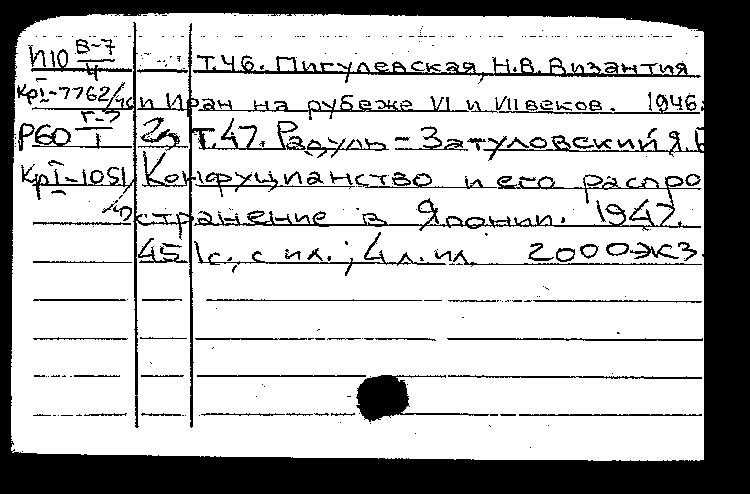 И10 В-7/4 Т.46. Пигулевская, Н.В. Византия
КрI-7762/ и Иран на рубеже VI и VII веков. 1946.
Р60 Г-5/1 2э Т.47. Радуль-Затуловский Я.Б
КрI-1051 Конфуцианство и его распро
странение в Японии. 1947.
451с., с ил.; 4 л. ил. 2000экз.